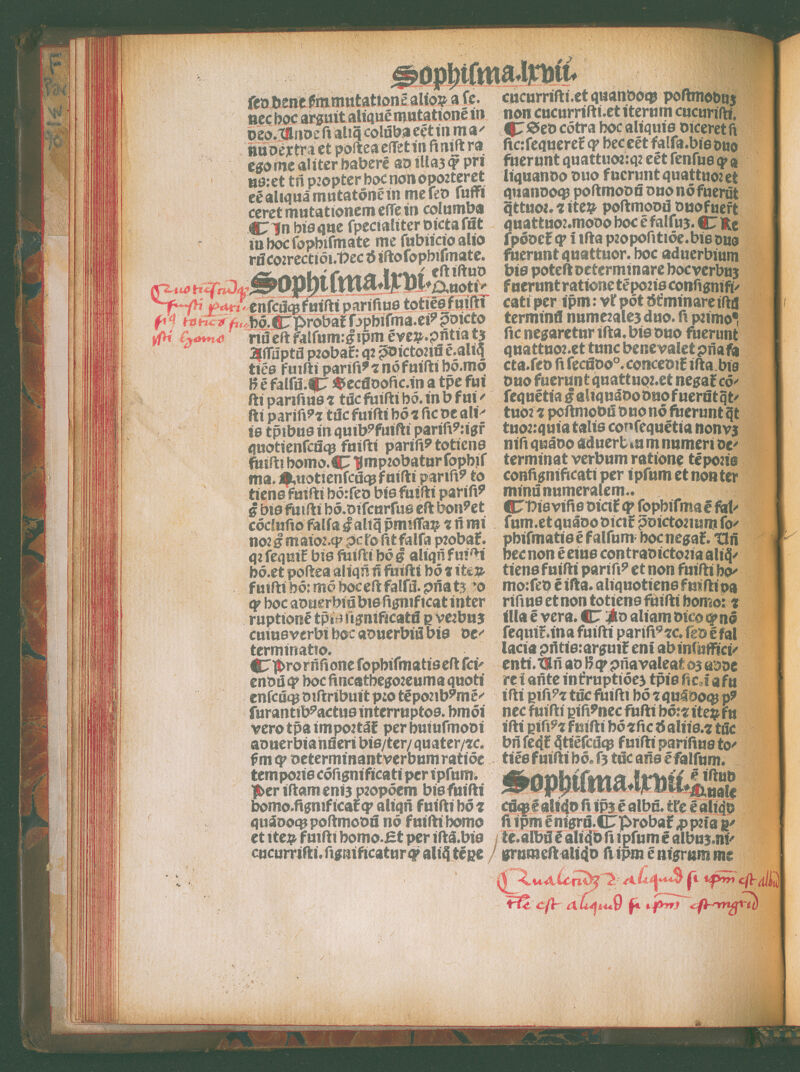 F
Pav
W
96
Sophisma.lxvii.
sed bene ẜm mutationē alioꝝ a se.
nec hoc arguit aliquē mutationē in
deo. Unde si aliq̄ colūba eēt in ma⸗
nu dextra et postea esset in sinistra
ego me aliter haberē ad illaʒ ꝙ pri
us: et tn̄ propter hoc non oporteret
eē aliquā mutatōnē in me sed suffi
ceret mutationem esse in columba
¶ In his que specialiter dicta sūt
in hoc sophismate me subiicio alio
rū correctiōi. Hec ď isto sophismate.
Sophisma.lxvi. est istud
Quoti⸗
enscūqꝫ fuisti parisius totiēs fuisti
hō. ¶ Probat᷑ sophisma. eiꝰ ↄ̄dicto
riū est falsum: g̊ ip̄m ē veꝝ. ↄ̄ntia tꝫ
Assūptū probat᷑: qꝛ ↄ̄dictoriū ē. aliq̄
tiēs fuisti parisiꝰ ⁊ nō fuisti hō. mō
ꝧ ē falsū. ¶ Secūdo sic. in a tp̄e fui
sti parisius ⁊ tūc fuisti hō. in b fui⸗
sti parisiꝰ ⁊ tūc fuisti hō ⁊ sic de ali⸗
is tp̄ibus in quibꝰ fuisti parisiꝰ: igr̄
quotienscūqꝫ fuisti parisiꝰ totiens
fuisti homo. ¶ Improbatur sophis
ma. Quotienscūqꝫ fuisti parisiꝰ to
tiens fuisti hō: sed bis fuisti parisiꝰ
g̊ bis fuisti hō. discursus est bonꝰ et
cōclusio falsa g̊ aliq̄ p̄missaꝝ ⁊ n̄ mi
nor g̊ maior. ꝙ ↄclo sit falsa probat᷑.
qꝛ sequit᷑ bis fuisti hō g̊ aliqn̄ fuisti
hō. et postea aliqn̄ n̄ fuisti hō ⁊ iteꝝ
fuisti hō: mō hoc est falsū. ↄ̄ña tꝫ
ꝙ hoc aduerbiū bis significat inter
ruptionē tp̄is significatū ꝑ verbuꝫ
cuius verbi hoc aduerbiū bis de⸗
terminatio.
¶ Pro rn̄sione sophismatis est sci⸗
endū ꝙ hoc sincathegoreuma quoti
enscūqꝫ distribuit pro tēporibꝰ mē⸗
surantibꝰ actus interruptos. hmōi
vero tp̄a importāt᷑ per huiusmodi
aduerbia nūeri bis/ter/quater/⁊c.
ẜm ꝙ determinant verbum ratiōe
temporis cōsignificati per ipsum.
Per istam eniꝫ ꝓpōem bis fuisti
homo. significat᷑ ꝙ aliqn̄ fuisti hō ⁊
quādoqꝫ postmodū nō fuisti homo
et iteꝝ fuisti homo. Et per istā. bis
cucurristi. significatur ꝙ aliq̄ tēꝑe
cucurristi. et quandoqꝫ postmoduꝫ
non cucurristi. et iterum cucuristi.
¶ Sed cōtra hoc aliquis diceret si
sic: sequeret᷑ ꝙ hec eēt falsa. bis duo
fuerunt quattuor: qꝛ eēt sensus ꝙ a
liquando duo fuerunt quattuor et
quandoqꝫ postmodū duo nō fuerūt
q̄ttuor. ⁊ iteꝝ postmodū duo fuer̄t
quattuor. modo hoc ē falsuꝫ. ¶ Re
spōdet᷑ ꝙ ī ista propositiōe. bis duo
fuerunt quattuor. hoc aduerbium
bis potest determinare hoc verbuꝫ
fuerunt ratione tēporis consignifi⸗
cati per ip̄m: vl᷑ pōt ďt̄minare istū
terminū numeraleꝫ duo. si primoꝰ
sic negaretur ista. bis duo fuerunt
quattuor. et tunc bene valet ↄ̄ña fa
cta. sed si secūdoꝰ. concedit᷑ ista. bis
duo fuerunt quattuor. et negat᷑ cō⸗
sequētia g̊ aliquādo duo fuerūt q̄t⸗
tuor ⁊ postmodū duo nō fuerunt q̄t
tuor: quia talis consequētia non vꝫ
nisi quādo aduerbium numeri de⸗
terminat verbum ratione tēporis
consignificati per ipsum et non ter
minū numeralem..
¶ His visis dicit᷑ ꝙ sophisma ē fal⸗
sum. et quādo dicit᷑ ↄ̄dictorium so⸗
phismatis ē falsum. hoc negat᷑. Un̄
hec non ē eius contradictoria aliq̄⸗
tiens fuisti parisiꝰ et non fuisti ho⸗
mo: sed ē ista. aliquotiens fuisti pa
risius et non totiens fuisti homo: ⁊
illa ē vera. ¶ Ad aliam dico ꝙ nō
sequit᷑. in a fuisti parisiꝰ ⁊c. sed ē fal
lacia ↄ̄ntis: arguit᷑ eni ab insuffici⸗
enti. Un̄ ad ꝧ ꝙ ↄ̄ña valeat oꝫ adde
re i an̄te int᷑ruptiōeꝫ tp̄is sic. i a fu
isti ꝑisiꝰ ⁊ tūc fuisti hō ⁊ quādoqꝫ pꝰ
nec fuisti ꝑisiꝰ nec fuisti hō: ⁊ iteꝝ fu
isti ꝑisiꝰ ⁊ fuisti hō ⁊ sic ď aliis. ⁊ tūc
bn̄ seq̄t᷑ q̄tiēscūqꝫ fuisti parisius to⸗
tiēs fuisti hō. sꝫ tūc an̄s ē falsum.
Sophisma.lxvii. ē istud
Quale
cūqꝫ ē aliq̊d si ip̄ꝫ ē albū. tl᷑e ē aliq̊d
si ip̄m ē nigrū. ¶ Probat᷑ ꝓpria ꝑ⸗
te. albū ē aliq̊d si ipsum ē albuꝫ. ni⸗
grum est aliq̊d si ip̄m ē nigrum me
Quotiēscūqꝫ
fuisti pari⸗
siꝰ totiēs fu
isti homo
Qualecūqꝫ ē aliquid si ip̄m est albū
tl᷑e est aliquid si ip̄m est nigrū